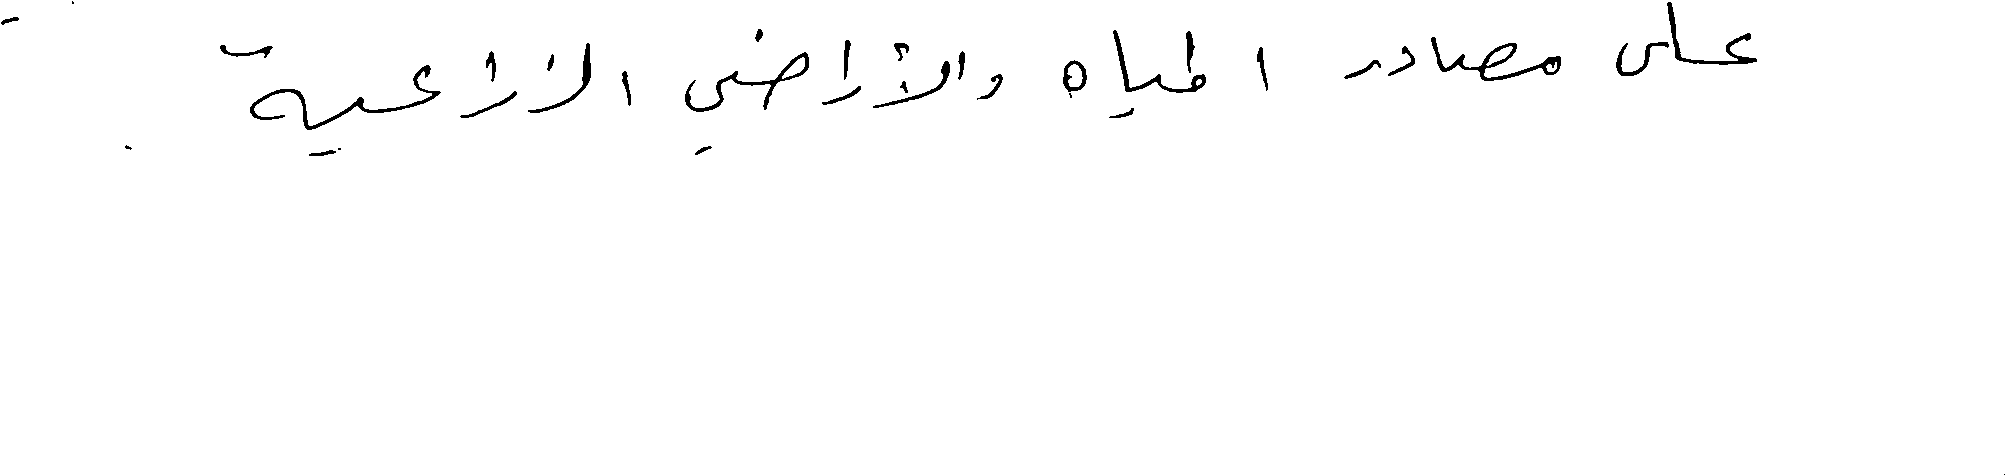 على مصادر المياه والأراضي الزراعية